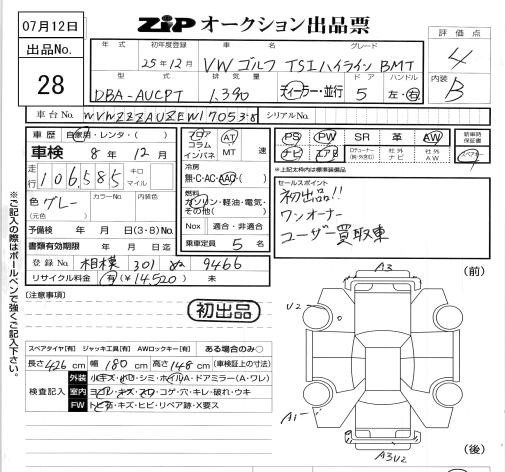 07月12日
ZIP オークション出品票
評価点
4
出品No.
28
年式 初年度登録 車名 グレード
25年12月 VW ゴルフ TSIハイライン BMT
内装
B
型式 排気量 ドア ハンドル
DBA-AUCPT 1,390 ディーラー・並行 5 左・右
車台No. WVWZZZAUZEW170538 シリアルNo.
車歴 自家用・レンタ・( )
車検 8年 12月
走行 106,585 キロ マイル
色 グレー (元色) カラーNo. 内装色
予備検 年 月 日(3・8)No.
書類有効期限 年 月 日迄
登録No. 相模 301 ぬ 9466
リサイクル料金 有(¥14,520) 未
フロア コラム インパネ AT MT 速
冷房
無・C・AC・AAC・( )
燃料
ガソリン・軽油・電気・その他( )
Nox 適合・非適合
乗車定員 5 名
PS PW SR 革 AW
ナビ エアB CDチューナー(純・外含む) 社外ナビ 社外AW
新車時保証書
スペアキー
※上記太枠内は標準装備品
セールスポイント
初出品!!
ワンオーナー
ユーザー買取車
※ご記入の際はボールペンで強くご記入下さい。
(注意事項)
初出品
A3
(前)
U2
A1
A3 U2
(後)
スペアタイヤ【有】 ジャッキ工具【有】 AWロックキー【有】 ある場合のみ○
長さ 426 cm 幅 180 cm 高さ 148 cm (車検証上の寸法)
検査記入
外装 小キズ・小凹・シミ・ホイルA・ドアミラー(A・ワレ)
室内 ヨゴレ・キズ・スレ・コゲ・穴・キレ・破れ・ウキ
FW トビ石・キズ・ヒビ・リペア跡・X要ス